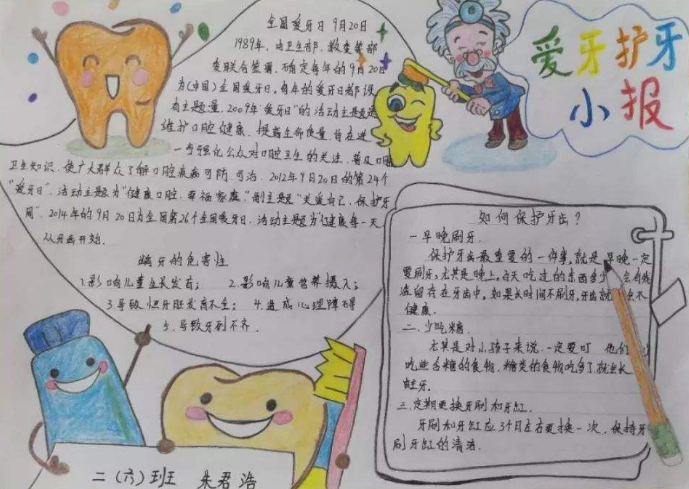 爱牙护牙
小报
全国爱牙日 9月20日
1989年，由卫生部、教委等部
委联合签署，确定每年的9月20日
为(中国)全国爱牙日，每年的爱牙日都设
有主题，2009年“爱牙日”的活动主题是
维护口腔健康、提高生命质量，旨在进
一步强化公众对口腔卫生的关注、普及口腔
卫生知识，使广大群众了解口腔疾病可防可治。2012年9月20日的第24个
“爱牙日”，活动主题为“健康口腔，幸福家庭”，副主题“关爱自己，保护牙
周”。2014年的9月20日为全国第26个全国爱牙日，活动主题为“健康每一天
从牙齿开始。
龋牙的危害性
1.影响儿童生长发育； 2.影响儿童营养摄入；
3.导致恒牙胚发育不全； 4.造成心理障碍
5.导致牙列不齐.
如何保护牙齿？
一.早晚刷牙.
保护牙齿最重要的一件事，就是早晚一定
要刷牙，尤其是晚上，白天吃过的东西多少会有残
渣留存在牙齿中，如果长时间不刷牙，牙齿就不
健康.
二.少吃糖.
尤其是对小孩子来说，一定要叮 他们
吃些含糖的食物，糖类的食物吃多了，就生长
蛀牙.
三.定期更换牙刷和牙缸.
牙刷和牙缸应3个月左右更换一次，保持牙
刷牙缸的清洁.
二(六)班 朱君浩